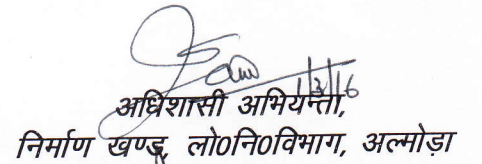 1/3/16
अधिशासी अभियन्ता,
निर्माण खण्ड, लो0नि0विभाग, अल्मोड़ा